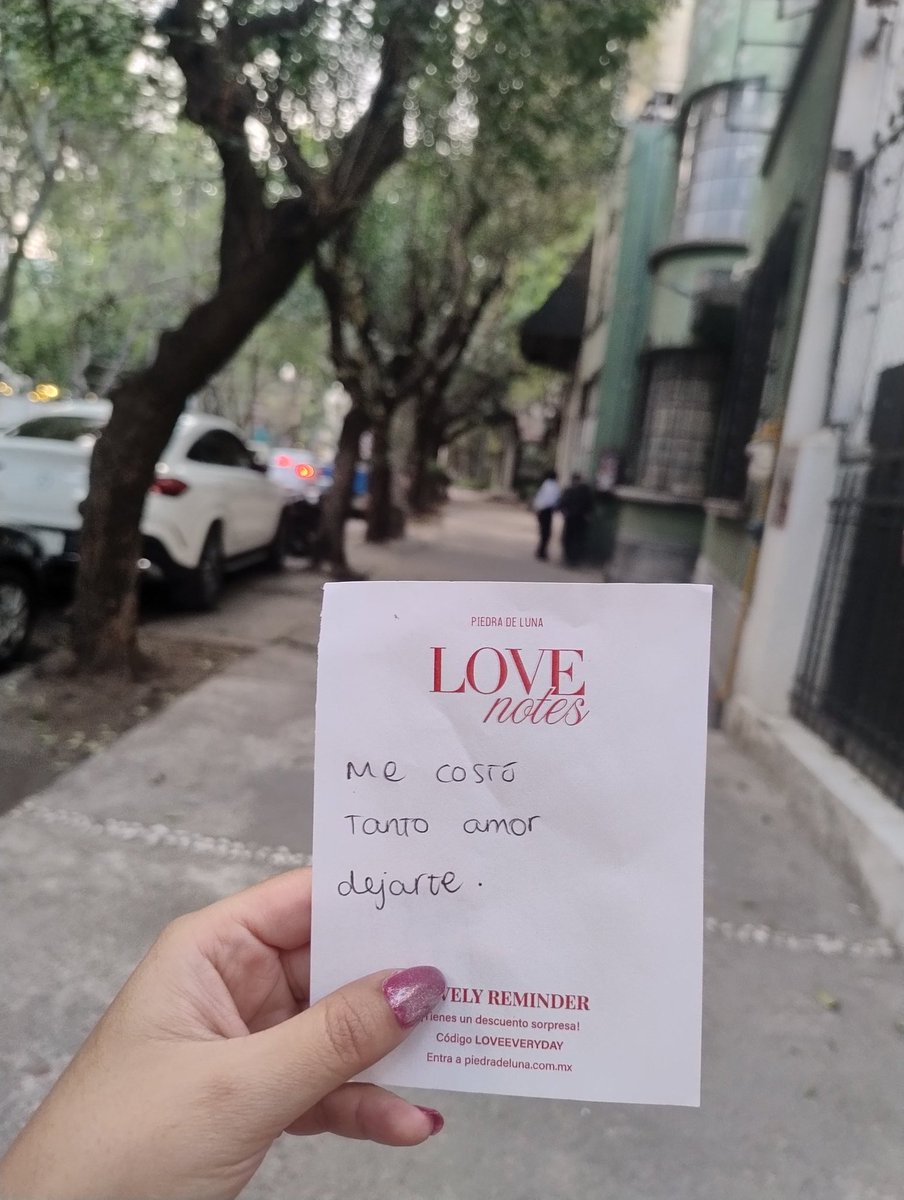 PIEDRA DE LUNA
LOVE
notes
Me costó
Tanto amor
dejarte.
VELY REMINDER
¡Tienes un descuento sorpresa!
Código LOVEEVERYDAY
Entra a piedradeluna.com.mx